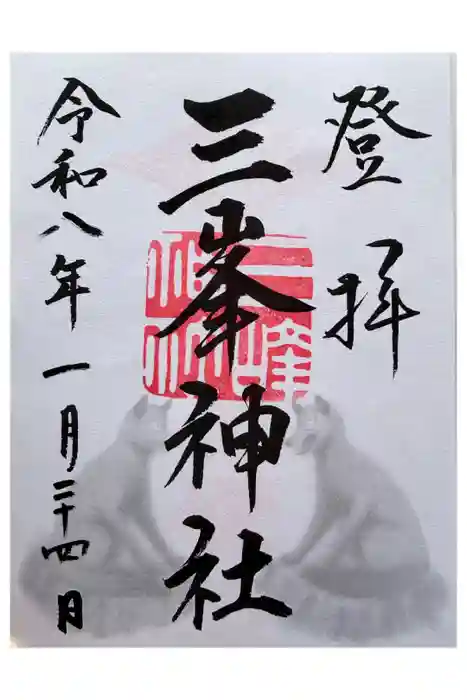 登拝
三峯神社
令和八年一月二十四日